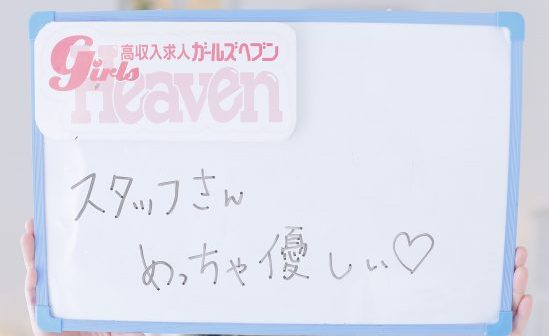 高収入求人ガールズヘブン
Girls
Heaven
スタッフさん
めっちゃ優しい♡